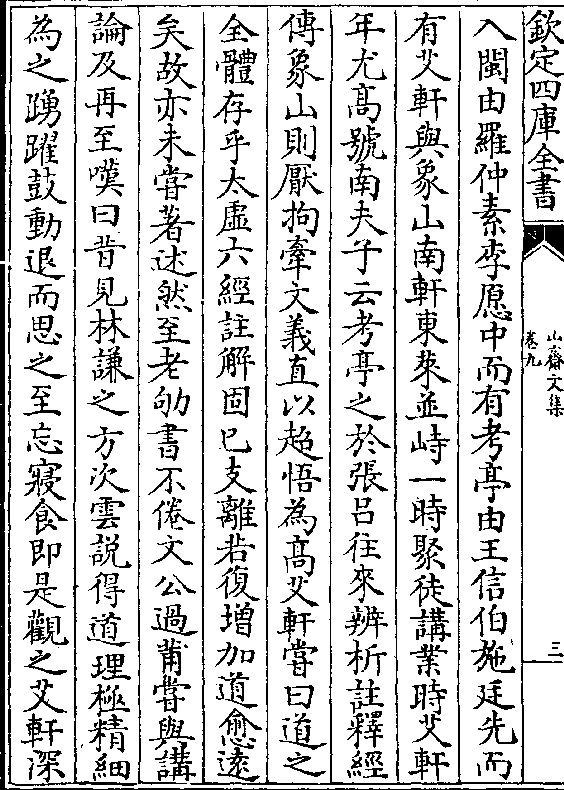 欽定四庫全書
山齋文集
卷九
三
入閩由羅仲素李愿中而有考亭由王信伯施廷先而
有艾軒與象山南軒東萊並峙一時聚徒講業時艾軒
年尤高號南夫子云考亭之於張呂往來辨析註釋經
傳象山則厭拘牽文義直以超悟為高艾軒嘗曰道之
全體存乎太虛六經註解固已支離若復增加道愈遠
矣故亦未嘗著述然至老劬書不倦文公過莆嘗與講
論及再至嘆曰昔見林謙之方次雲説得道理極精細
為之踴躍鼓動退而思之至忘寢食即是觀之艾軒深